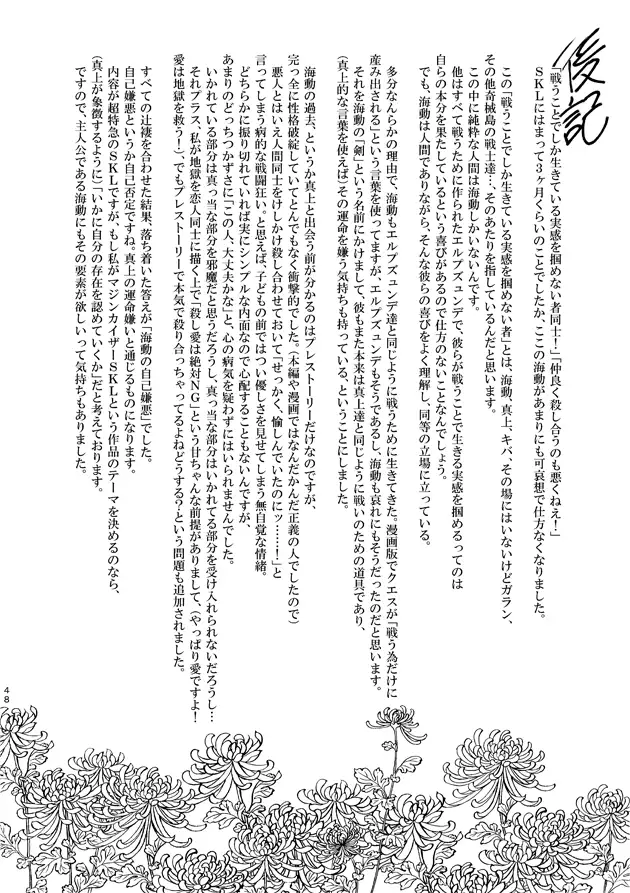 後記
「戦うことでしか生きている実感を掴めない者同士！」「仲良く殺し合うのも悪くねえ！」
ＳＫＬにはまって３ヶ月くらいのことでしたか、ここの海動があまりにも可哀想で仕方なくなりました。
この「戦うことでしか生きている実感を掴めない者」とは、海動、真上、キバ、その場にはいないけどガラン、
その他奇械島の戦士達…、そのあたりを指しているんだと思います。
この中に純粋な人間は海動しかいないんです。
他はすべて戦うために作られたエルプズュンデで、彼らが戦うことで生きる実感を掴めるってのは
自らの本分を果たしているという喜びがあるので仕方のないことなんでしょう。
でも、海動は人間でありながら、そんな彼らの喜びをよく理解し、同等の立場に立っている。
多分なんらかの理由で、海動もエルプズュンデ達と同じように戦うために生きてきた。漫画版でクエスが「戦う為だけに
産み出される」という言葉を使ってますが、エルプズュンデもそうであるし、海動も哀れにもそうだったのだと思います。
それを海動の「剣」という名前にかけまして、彼もまた本来は真上達と同じように戦いのための道具であり、
（真上的な言葉を使えば）その運命を嫌う気持ちも持っている、ということにしました。
海動の過去、というか真上と出会う前が分かるのはプレストーリーだけなのですが、
完っ全に性格破綻していてとんでもなく衝撃的でした。（本編や漫画ではなんだかんだ正義の人でしたので）
悪人とはいえ人間同士をけしかけ殺し合わせておいて「せっかく、愉しんでいたのにッ……！」と
言ってしまう病的な戦闘狂い。と思えば、子どもの前ではつい優しさを見せてしまう無自覚な情緒。
どちらかに振り切れていれば実にシンプルな内面なので心配することもないんですが、
あまりのどっちつかずさに「この人、大丈夫かな」と、心の病気を疑わずにはいられませんでした。
いかれている部分は真っ当な部分を邪魔だと思うだろうし、真っ当な部分はいかれてる部分を受け入れられないだろうし…
それプラス、私が地獄を恋人同士に描く上で「殺し愛は絶対ＮＧ」という甘ちゃんな前提がありまして、（やっぱり愛ですよ！
愛は地獄を救う！）、でもプレストーリーで本気で殺り合っちゃってるよねどうする？という問題も追加されました。
すべての辻褄を合わせた結果、落ち着いた答えが「海動の自己嫌悪」でした。
自己嫌悪というか自己否定ですね。真上の運命嫌いと通じるものになります。
内容が超特急のＳＫＬですが、もし私がマジンカイザーＳＫＬという作品のテーマを決めるのなら、
（真上が象徴するように）「いかに自分の存在を認めていくか」だと考えております。
ですので、主人公である海動にもその要素が欲しいって気持ちもありました。
４８